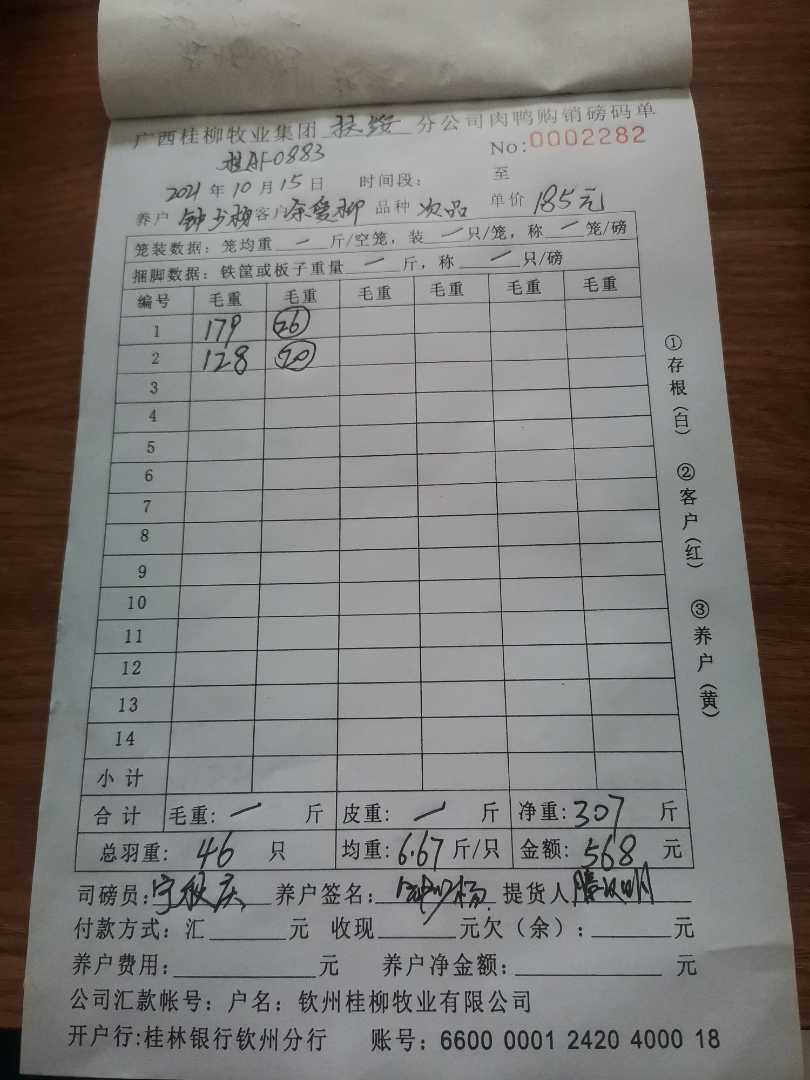 广西桂柳牧业集团 扶绥 分公司肉鸭购销磅码单
桂AF0883 No:0002282
2021年10月15日 时间段: 至
养户 钟少杨 客户 余爱柳 品种 次品 单价 1.85元
笼装数据:笼均重 一 斤/空笼,装 一 只/笼,称 一 笼/磅
捆脚数据:铁筐或板子重量 一 斤,称 一 只/磅
编号 毛重 毛重 毛重 毛重 毛重 毛重
1 179 26
2 128 20
3
4
5
6
7
8
9
10
11
12
13
14
小计
合计 毛重: 一 斤 皮重: 一 斤 净重: 307 斤
总羽重: 46 只 均重: 6.67 斤/只 金额: 568 元
司磅员: 宁秋庆 养户签名: 钟少杨 提货人
付款方式:汇 元 收现 元欠(余): 元
养户费用: 元 养户净金额: 元
公司汇款帐号:户名:钦州桂柳牧业有限公司
开户行:桂林银行钦州分行 账号:6600 0001 2420 4000 18
①存根(白) ②客户(红) ③养户(黄)